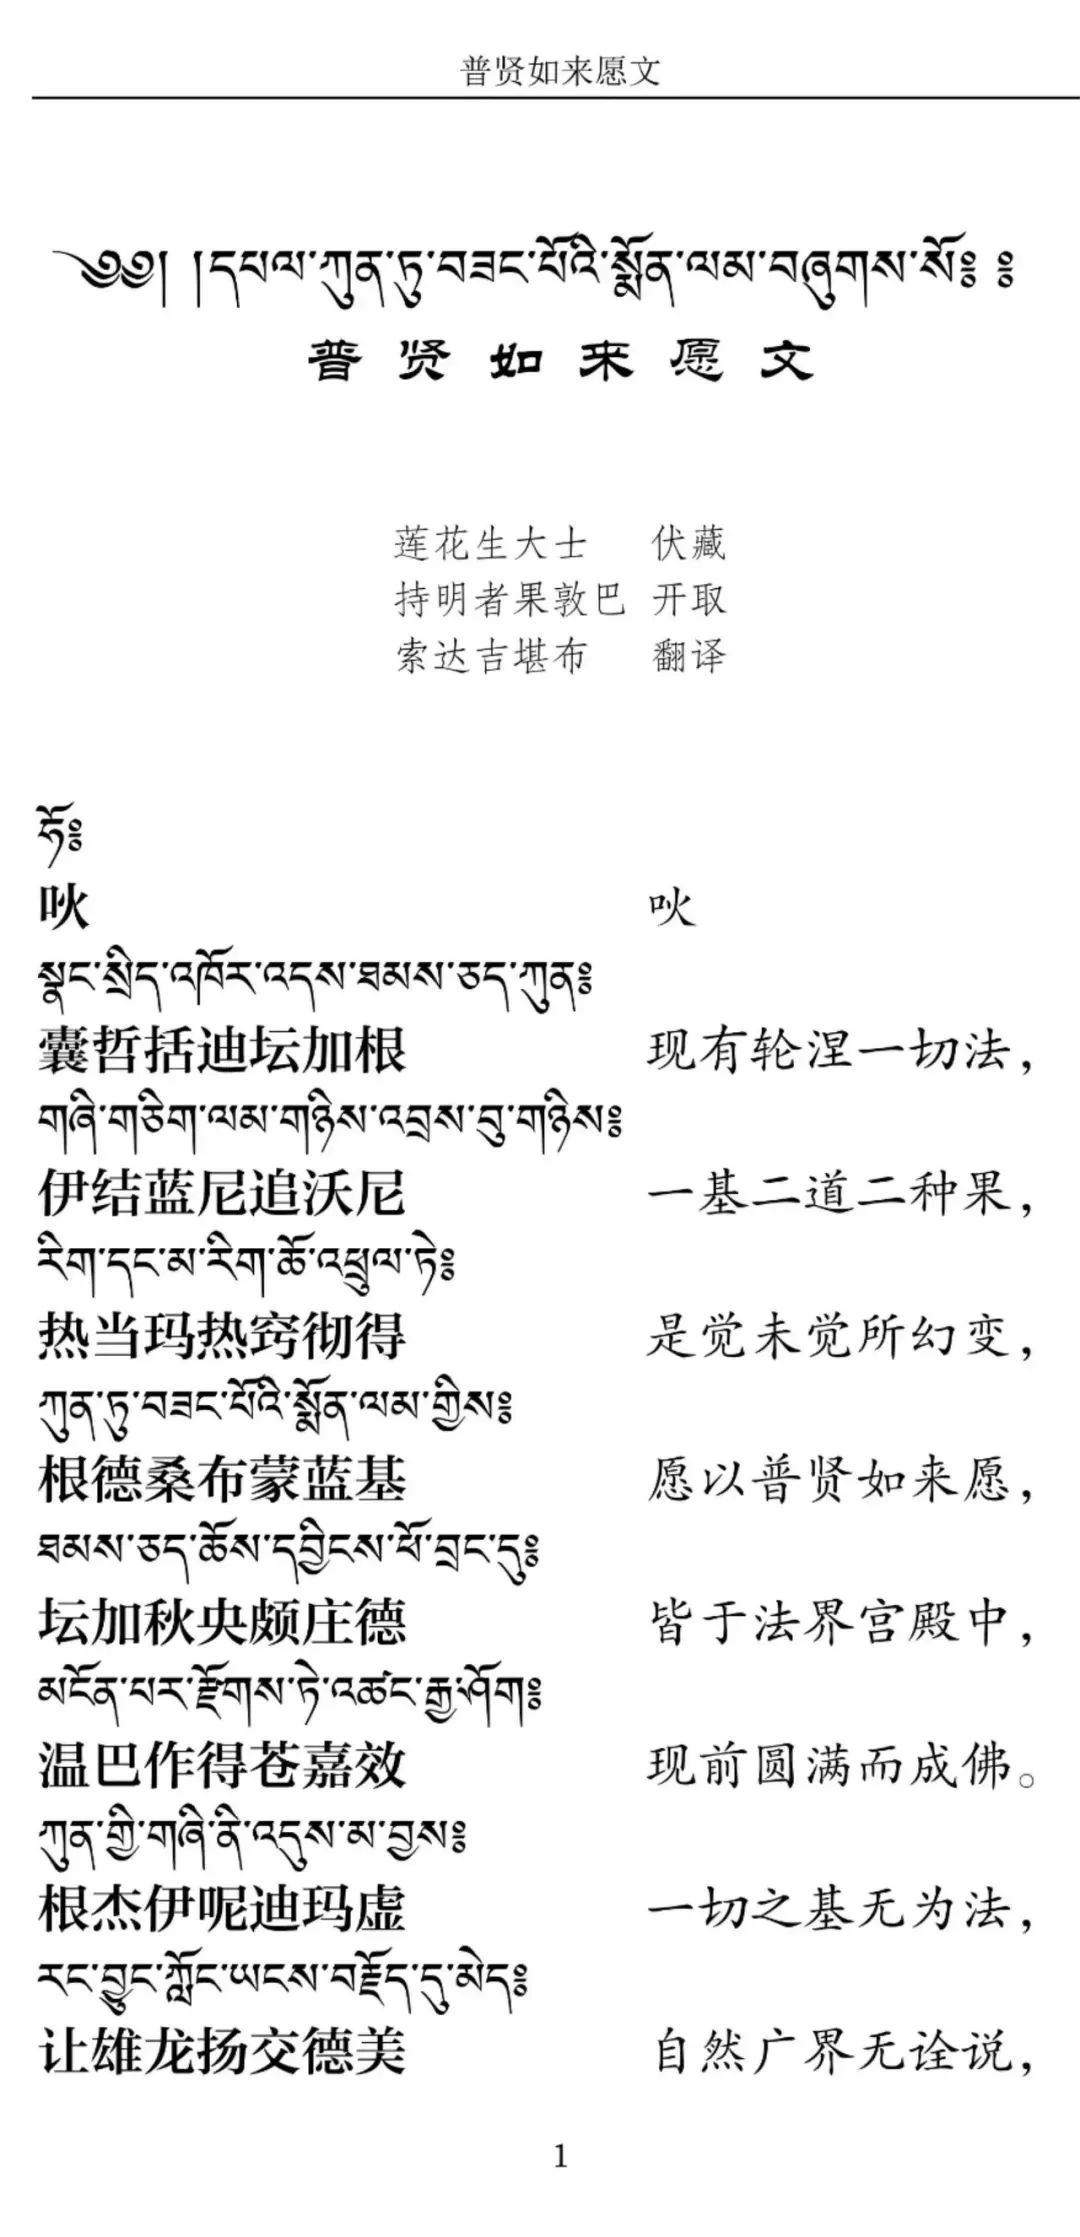 普贤如来愿文
༄༅། །དཔལ་ཀུན་ཏུ་བཟང་པོའི་སྨོན་ལམ་བཞུགས་སོ༔ ༔
普贤如来愿文
莲花生大士 伏藏
持明者果敦巴 开取
索达吉堪布 翻译
ཧོ༔
吙 吙
སྣང་སྲིད་འཁོར་འདས་ཐམས་ཅད་ཀུན༔
囊哲括迪坛加根 现有轮涅一切法，
གཞི་གཅིག་ལམ་གཉིས་འབྲས་བུ་གཉིས༔
伊结蓝尼追沃尼 一基二道二种果，
རིག་དང་མ་རིག་ཆོ་འཕྲུལ་ཏེ༔
热当玛热窍彻得 是觉未觉所幻变，
ཀུན་ཏུ་བཟང་པོའི་སྨོན་ལམ་གྱིས༔
根德桑布蒙蓝基 愿以普贤如来愿，
ཐམས་ཅད་ཆོས་དབྱིངས་ཕོ་བྲང་དུ༔
坛加秋央颇庄德 皆于法界宫殿中，
མངོན་པར་རྫོགས་ཏེ་འཚང་རྒྱ་ཤོག༔
温巴作得苍嘉效 现前圆满而成佛。
ཀུན་གྱི་གཞི་ནི་འདུས་མ་བྱས༔
根杰伊呢迪玛虚 一切之基无为法，
རང་བྱུང་ཀློང་ཡངས་བརྗོད་དུ་མེད༔
让雄龙扬交德美 自然广界无诠说，
1